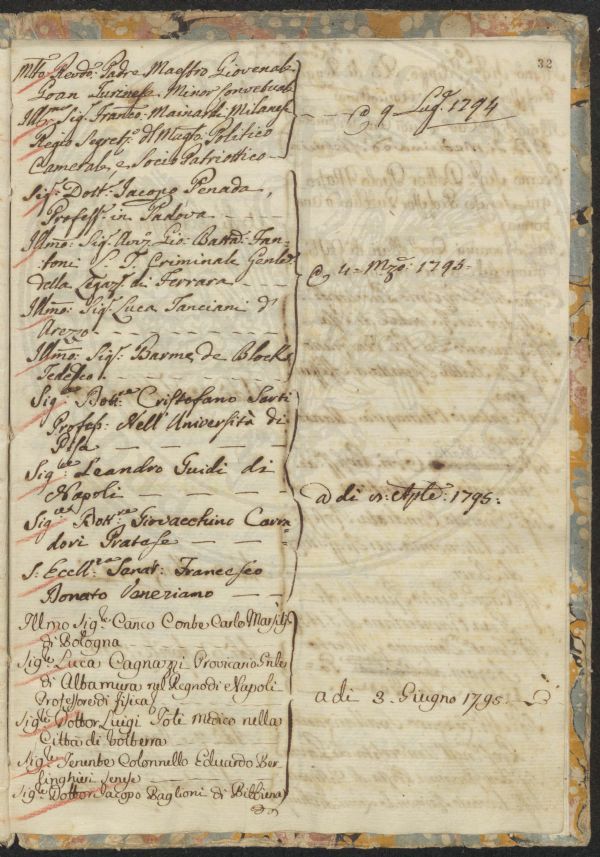 32
Mto. Revdo: Padre Maestro Giovenale
Goan Turinese, Minor Conventuale
Illmo. Sig. Franco. Mainardi Milanese
Regio Segreto. del Magto. Politico
Camerale, e Socio Patriottico
a 9 Lugo. 1794
Sig. Dott. Jacopo Penada,
Profess: in Padova
Illmo: Sig. Gio: Batta: Fan-
toni L. T. Criminale Genle.
della Legazne. di Ferrara
Illmo: Sigr. Luca Tanciani d'
Arezzo
Illmo: Sigr: Barme. de Block
Tedesco
a 4= Mzo: 1795=
Sigre. Dottre. Cristofano Sarti
Profess: Nell'Università di
Pisa
Sigre. Leandro Guidi di
Napoli
Sigre. Dottre: Giovacchino Carra=
dori Pratese
S: Eccellza. Senatr: Francesco
Donato Veneziano
a di Aple: 1795:
Illmo Sigre. Canco Conte Carlo
di Bologna
Sigre. Luca Cagnazzi Provicario Gnle
di Altamura nel Regno di Napoli
Professore di fisica
Sigre. Dottor Luigi Toti Medico nella
Città di Volterra
Sigre. Tenente Colonnello Eduardo Ber
linghieri Senese
Sigre. Dottor Jacopo Baglioni di Bibbiena
a di 3. Giugno 1795.